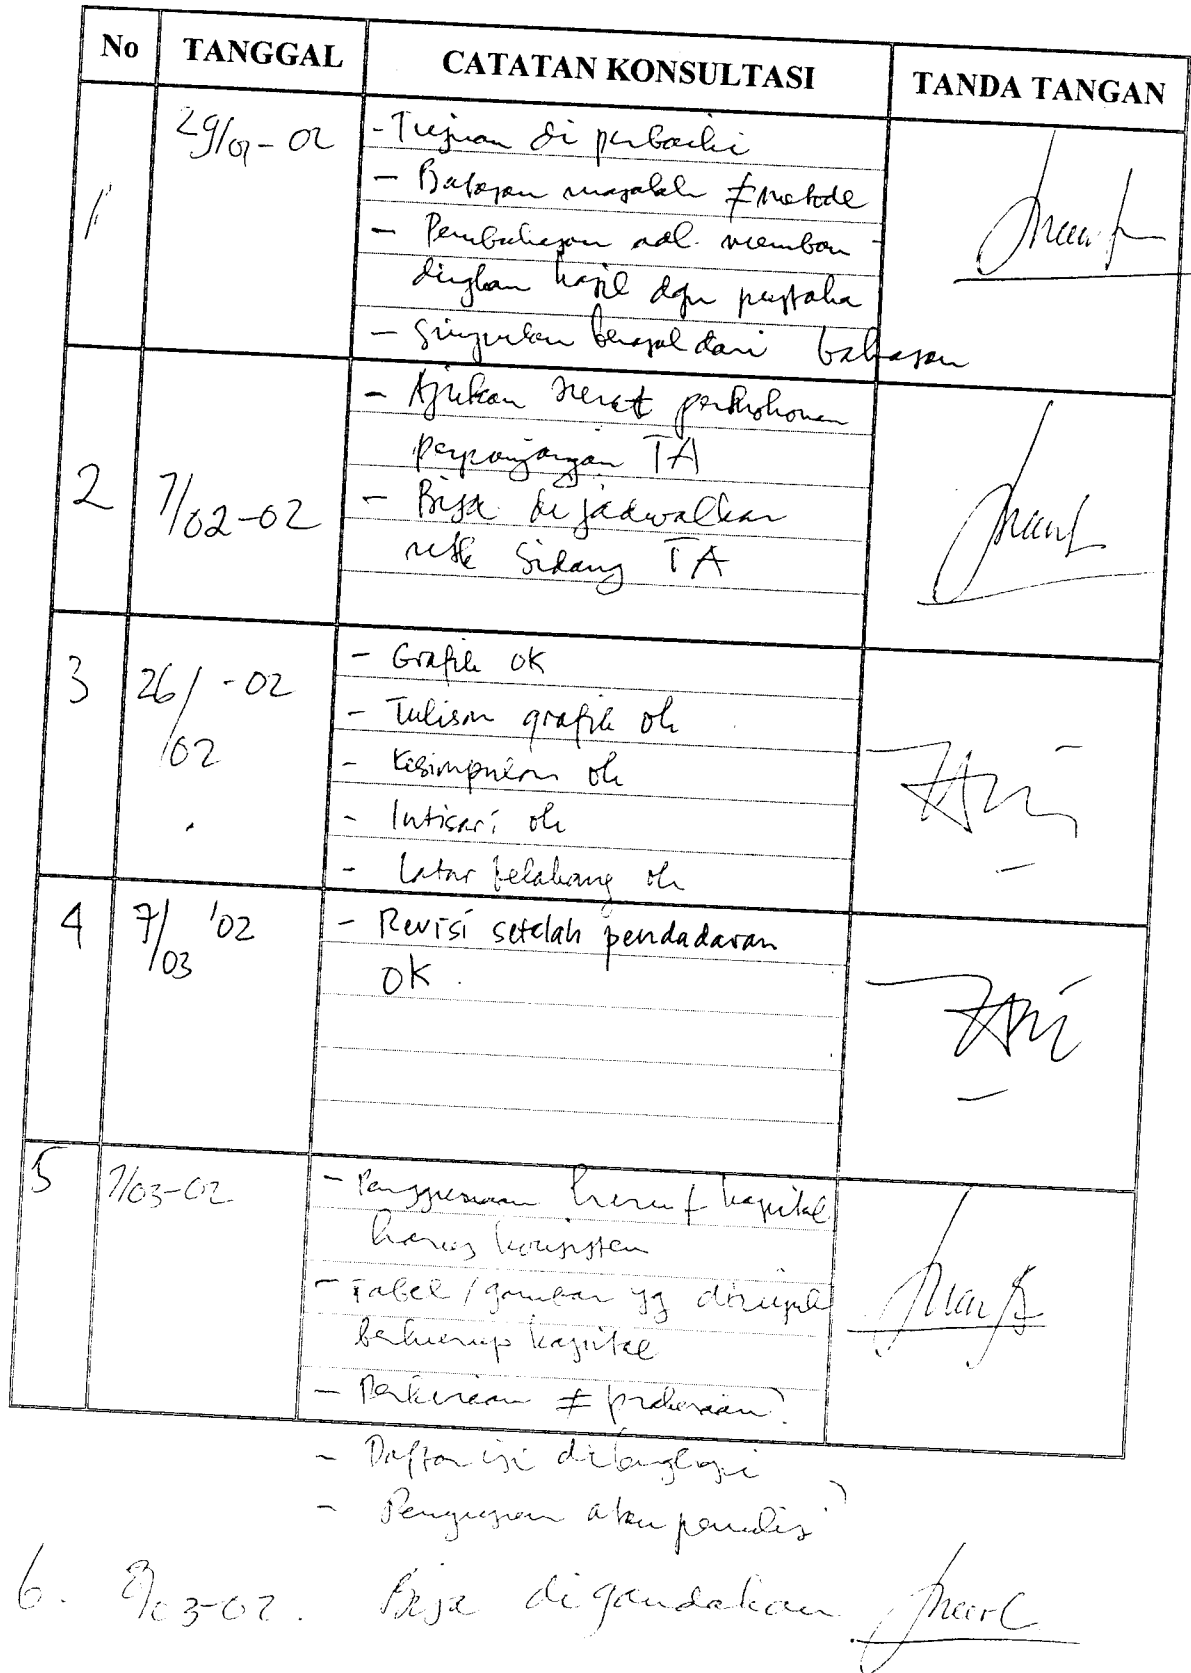 No TANGGAL CATATAN KONSULTASI TANDA TANGAN
1 29/01-02 - Tujuan di perbaiki
- Batasan masalah ≠ metode
- Pembahasan adl. memban-
dingkan hasil dgn pustaka
- Simpulan berasal dari bahasan
2 7/02-02 - Ajukan surat permohonan
perpanjangan TA
- Bisa di jadwalkan
utk Sidang TA
3 26/02-02 - Grafik OK
- Tulisan grafik ok
- Kesimpulan ok
- Intisari ok
- Latar belakang ok
4 7/03 '02 - Revisi setelah pendadaran
OK.
5 7/03-02 - Penggunaan huruf kapital
harus konsisten
- Tabel / gambar yg dirujuk
berhuruf kapital
- Perkiraan ≠
- Daftar isi dilengkapi
- atau
6. 8/03-02. Bisa digandakan